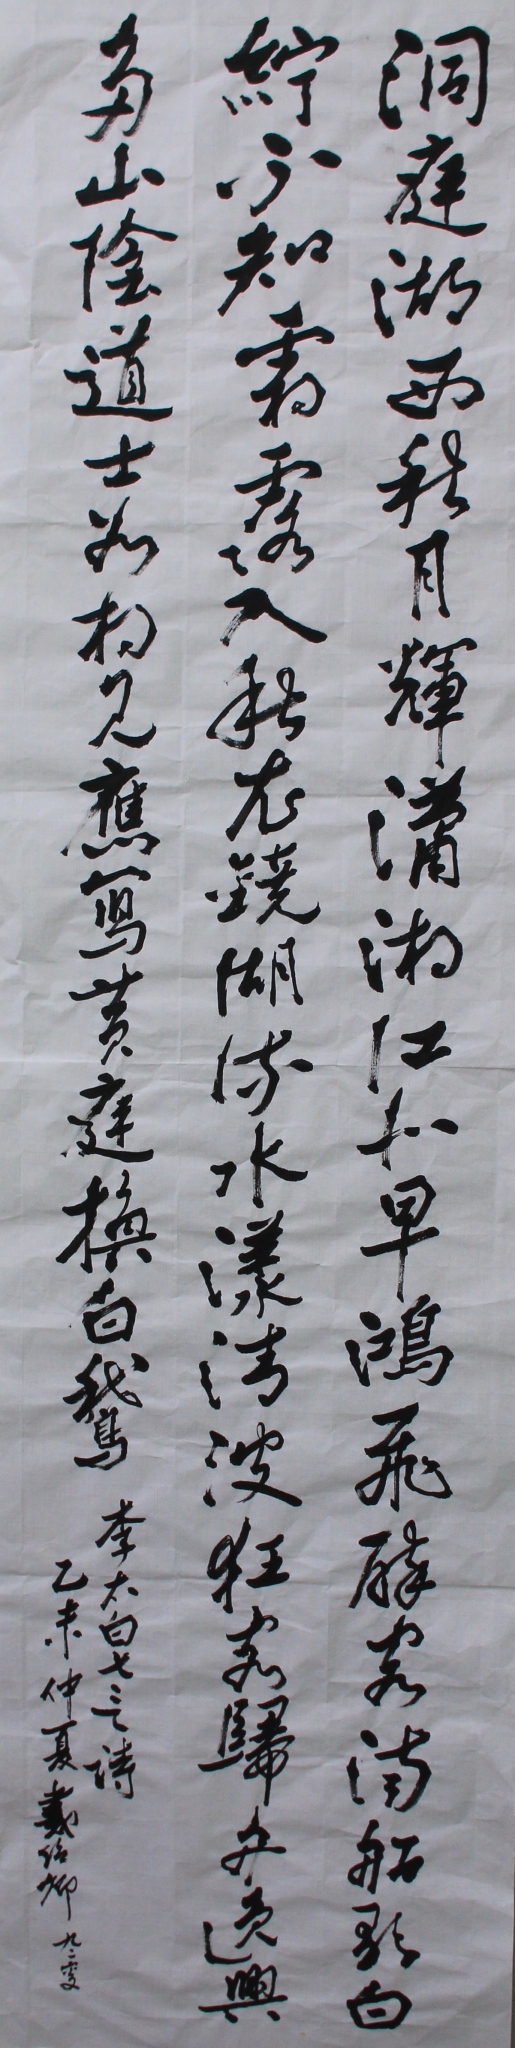 洞庭湖西秋月輝瀟湘江北早鴻飛醉客滿船歌白
紵不知霜露入秋衣鏡湖流水漾清波狂客歸舟逸興
多山陰道士如相見應寫黃庭換白鵝
李太白七言詩
乙未仲夏戴紹卿九二叟